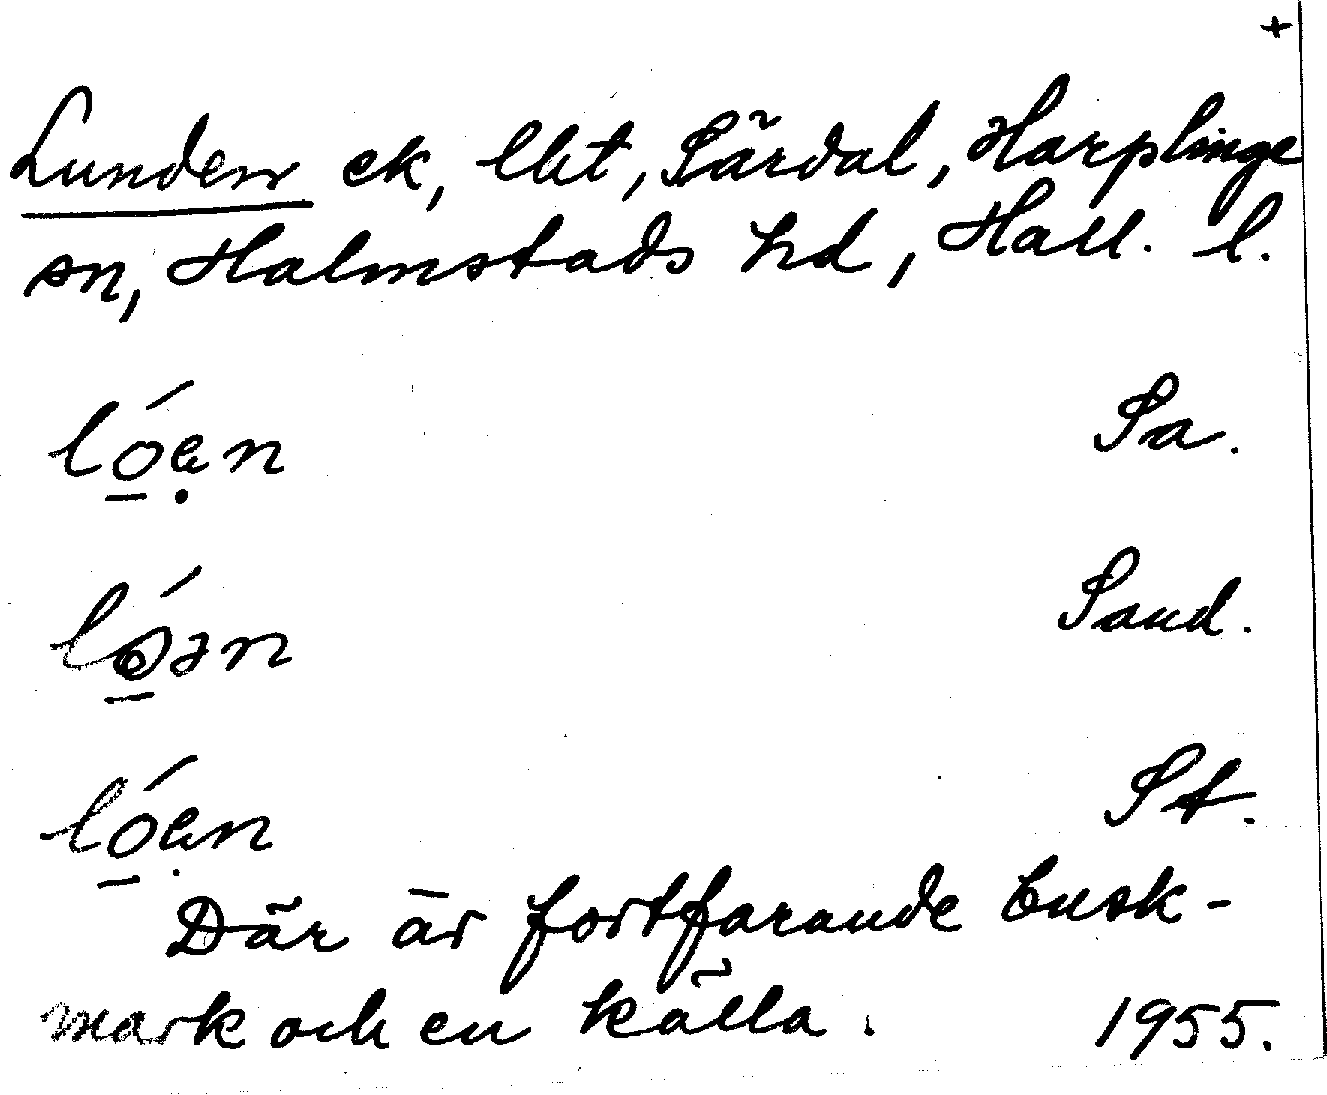 +
Lunden ek, lht, Särdal, Harplinge
sn, Halmstads hd, Hall. l.
ló̱ẹn Sa.
ló̱ən Sand.
ló̱ẹn St.
Där är fortfarande busk-
mark och en källa. 1955.